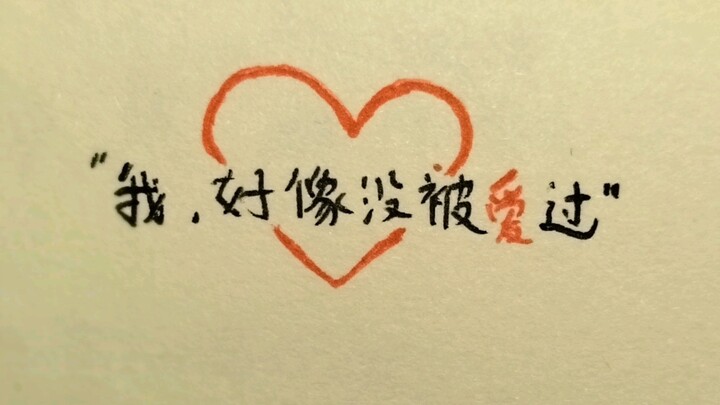 "我,好像没被爱过"